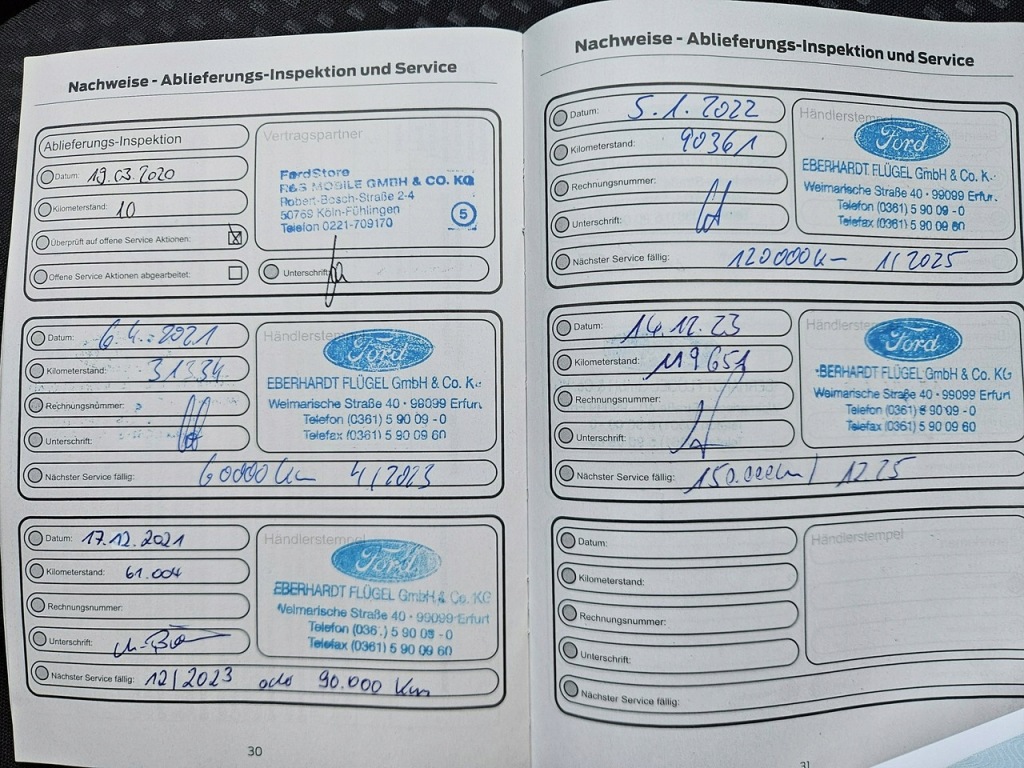 Nachweise - Ablieferungs-Inspektion und Service
Ablieferungs-Inspektion
Datum: 19.03.2020
Kilometerstand: 10
Überprüft auf offene Service Aktionen:
Offene Service Aktionen abgearbeitet:
Vertragspartner
FordStore
R&S MOBILE GMBH & CO. KG
Robert-Bosch-Straße 2-4
50769 Köln-Fühlingen
Telefon 0221-709170
5
Unterschrift:
Datum: 6.4.2021
Kilometerstand: 31334
Rechnungsnummer:
Unterschrift:
Nächster Service fällig: 60000 Km 4/2023
Händlerstempel
Ford
EBERHARDT FLÜGEL GmbH & Co. K
Weimarische Straße 40 · 99099 Erfurt
Telefon (0361) 5 90 09 - 0
Telefax (0361) 5 90 09 60
Datum: 17.12.2021
Kilometerstand: 61.004
Rechnungsnummer:
Unterschrift:
Nächster Service fällig: 12/2023 oder 90.000 Km
Händlerstempel
Ford
EBERHARDT FLÜGEL GmbH & Co. KG
Weimarische Straße 40 · 99099 Erfurt
Telefon (036.) 5 90 09 - 0
Telefax (0361) 5 90 09 60
30
Nachweise - Ablieferungs-Inspektion und Service
Datum: 5.1.2022
Kilometerstand: 90361
Rechnungsnummer:
Unterschrift:
Nächster Service fällig: 120000 Km 1/2025
Händlerstempel
Ford
EBERHARDT FLÜGEL GmbH & Co. K
Weimarische Straße 40 · 99099 Erfur
Telefon (0361) 5 90 09 - 0
Telefax (0361) 5 90 09 60
Datum: 14.12.23
Kilometerstand: 119651
Rechnungsnummer:
Unterschrift:
Nächster Service fällig: 150.000km / 12 25
Händlerstempel
Ford
EBERHARDT FLÜGEL GmbH & Co. KG
Weimarische Straße 40 · 99099 Erfurt
Telefon (0361) 5 90 09 - 0
Telefax (0361) 5 90 09 60
Datum:
Kilometerstand:
Rechnungsnummer:
Unterschrift:
Nächster Service fällig:
Händlerstempel
31